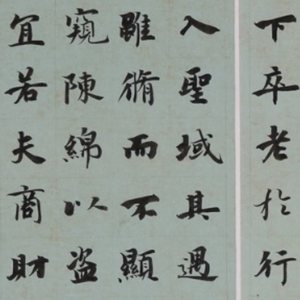 下卒老於行
入聖域其遇
雖脩而不顯
窺陳編以盜
宜若夫商財